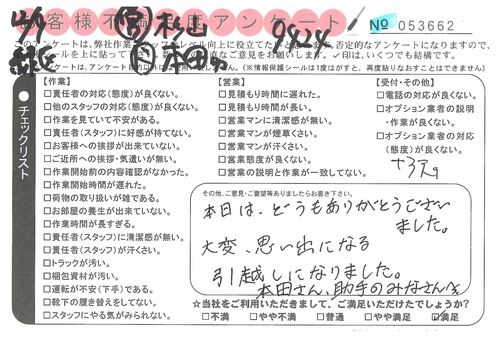 お客様不満足度アンケート
№ 053662
4/9
緑区
営 杉山
9424
本田
このアンケートは、弊社作業
否定的なアンケートになりますので、
ご意見をお願いします。✓印は、いくつでも結構です。
(※情報保護シールは1度はがすと、再度貼りなおすことはできません)
チェックリスト
【作業】
□責任者の対応(態度)が良くない。
□他のスタッフの対応(態度)が良くない。
□作業を見ていて不安がある。
□責任者(スタッフ)に好感が持てない。
□お客様への挨拶が出来ていない。
□ご近所への挨拶・気遣いが無い。
□作業開始前の内容確認がなかった。
□作業開始時間が遅れた。
□荷物の取り扱いが雑である。
□お部屋の養生が出来ていない。
□作業時間が長すぎる。
□責任者(スタッフ)に清潔感が無い。
□責任者(スタッフ)が汗くさい。
□トラックが汚い。
□梱包資材が汚い。
□運転が不安(下手)である。
□靴下の履き替えをしてない。
□スタッフにやる気がみられない。
【営業】
□見積もり時間に遅れた。
□見積もり時間が長い。
□営業マンに清潔感が無い。
□営業マンが煙草くさい。
□営業マンが汗くさい。
□営業態度が良くない。
□営業の説明と作業が一致してない。
【受付・その他】
□電話の対応が良くない。
□オプション業者の説明
・作業が良くない。
□オプション業者の対応
(態度)が良くない。
その他、ご意見・ご要望等ありましたらお書き下さい。
本日は、どうもありがとうござい
ました。
大変、思い出になる
引越しになりました。
本田さん、助手のみなさんも
☆当社をご利用いただきまして、ご満足いただけたでしょうか?
□不満 □やや不満 □普通 □やや満足 ☑満足